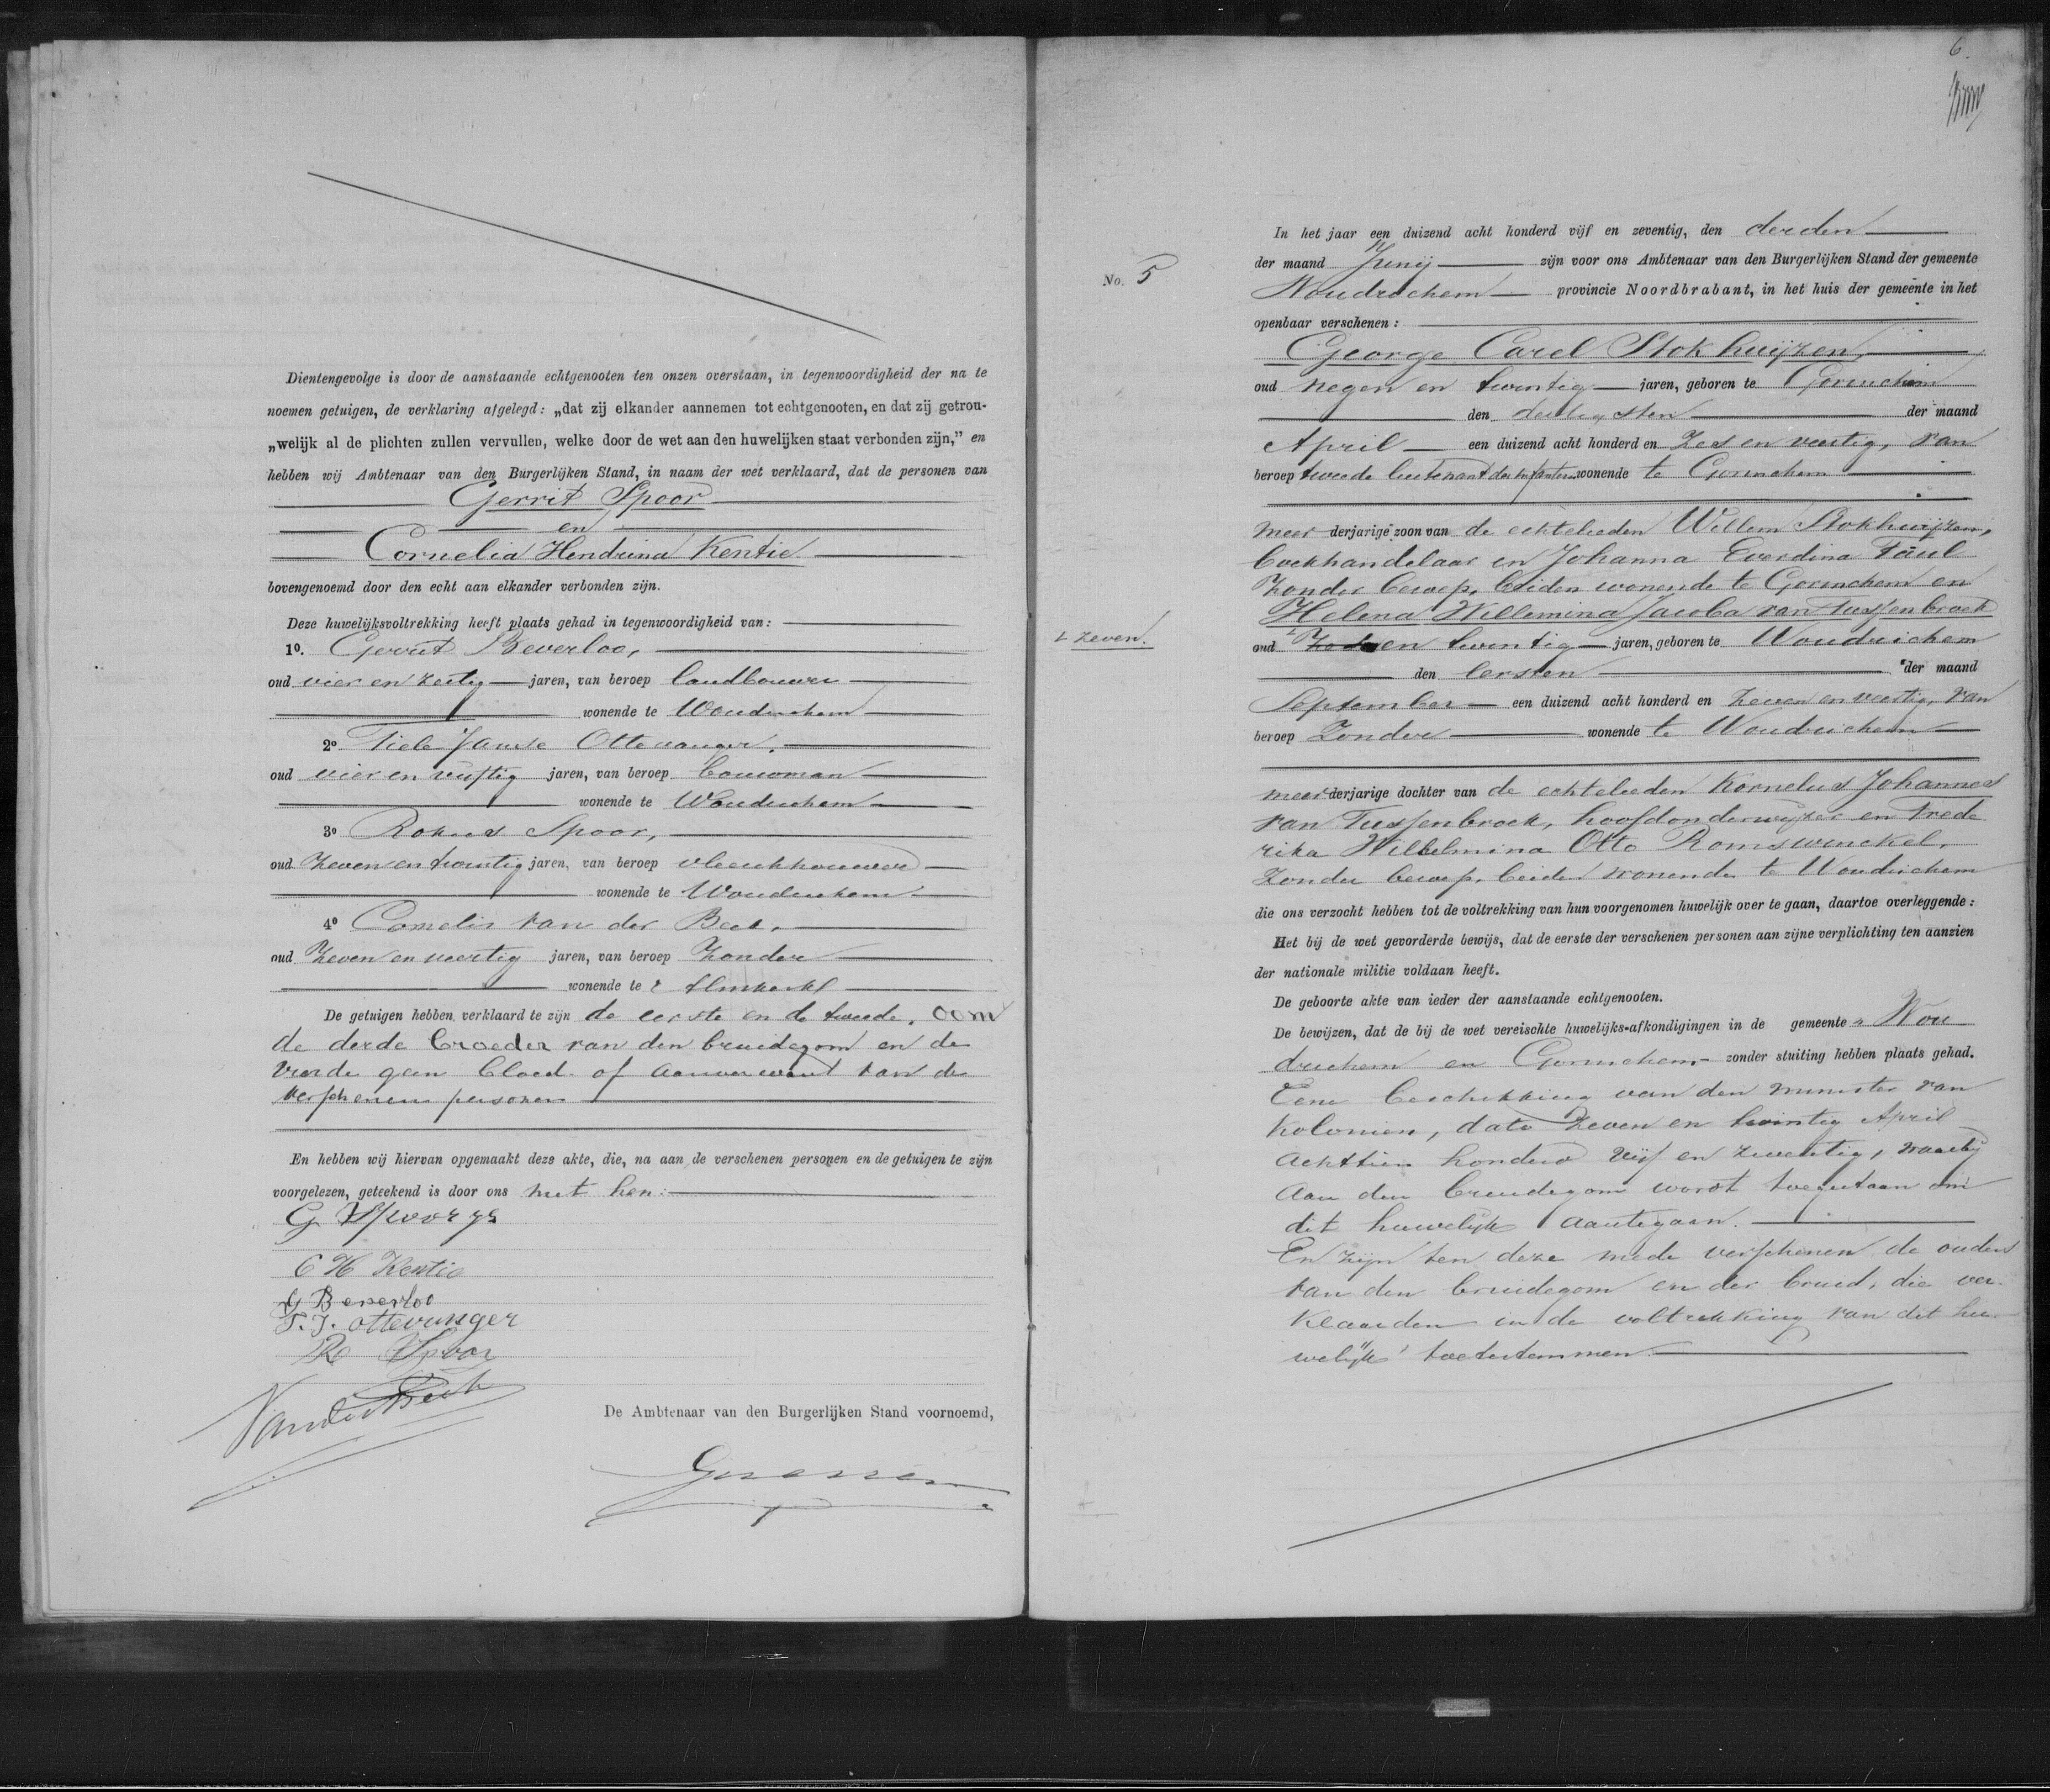 Dientengevolge is door de aanstaande echtgenooten ten onzen overstaan, in tegenwoordigheid der na te
noemen getuigen, de verklaring afgelegd: „dat zij elkander aannemen tot echtgenooten, en dat zij getrou-
„welijk al de plichten zullen vervullen, welke door de wet aan den huwelijken staat verbonden zijn,” en
hebben wij Ambtenaar van den Burgerlijken Stand, in naam der wet verklaard, dat de personen van
Gerrit Spoor
en
Cornelia Hendrina Kentie
bovengenoemd door den echt aan elkander verbonden zijn.
Deze huwelijksvoltrekking heeft plaats gehad in tegenwoordigheid van:
1º. Gerrit Beverloo,
oud vier en zestig jaren, van beroep landbouwer
wonende te Woudrichem
2º Tiele Janse Ottevanger,
oud vier en vijftig jaren, van beroep bouwman
wonende te Woudrichem
3º Rokus Spoor,
oud zeven en twintig jaren, van beroep vleeschhouwer
wonende te Woudrichem
4º Cornelis van der Beek,
oud zeven en veertig jaren, van beroep zonder
wonende te Almkerk
De getuigen hebben verklaard te zijn de eerste en de tweede, oom
de derde broeder van den bruidegom en de
vierde geen bloed- of aanverwant van de
verschenen personen
En hebben wij hiervan opgemaakt deze akte, die, na aan de verschenen personen en de getuigen te zijn
voorgelezen, geteekend is door ons met hen:
G Spoor gz
C H Kentie
G Beverloo
T. J. Ottevanger
R Spoor
Van der Beek
De Ambtenaar van den Burgerlijken Stand voornoemd,
6.
No. 5
In het jaar een duizend acht honderd vijf en zeventig, den derden
der maand Junij zijn voor ons Ambtenaar van den Burgerlijken Stand der gemeente
Woudrichem provincie Noordbrabant, in het huis der gemeente in het
openbaar verschenen:
George Carel Stokhuijzen,
oud negen en twintig jaren, geboren te Gorinchem
den dertigsten der maand
April een duizend acht honderd en zes en veertig, van
beroep tweede luitenant der infanterie wonende te Gorinchem
meerderjarige zoon van de echtelieden Willem Stokhuijzen,
boekhandelaar en Johanna Everdina Paul
zonder beroep, beiden wonende te Gorinchem en
Helena Willemina Jacoba van Tussenbroek
oud en twintig jaren, geboren te Woudrichem
zeven.
den eersten der maand
September een duizend acht honderd en zeven en veertig, van
beroep zonder wonende te Woudrichem
meerderjarige dochter van de echtelieden Kornelus Johannes
van Tussenbroek, hoofdonderwijzer en Frede
rika Wilhelmina Otto Romswinckel,
zonder beroep, beiden wonende te Woudrichem
die ons verzocht hebben tot de voltrekking van hun voorgenomen huwelijk over te gaan, daartoe overleggende:
Het bij de wet gevorderde bewijs, dat de eerste der verschenen personen aan zijne verplichting ten aanzien
der nationale militie voldaan heeft.
De geboorte akte van ieder der aanstaande echtgenooten.
De bewijzen, dat de bij de wet vereischte huwelijks-afkondigingen in de gemeente n Wou
drichem en Gorinchem zonder stuiting hebben plaats gehad.
Eene beschikking van den minister van
Kolonien, dato zeven en twintig April
achttien honderd vijf en zeventig, waarbij
aan den bruidegom wordt toegestaan om
dit huwelijk aantegaan.
En zijn ten deze mede verschenen de ouders
van den bruidegom en der bruid, die ver-
klaarden in de voltrekking van dit hu-
welijk toetestemmen.